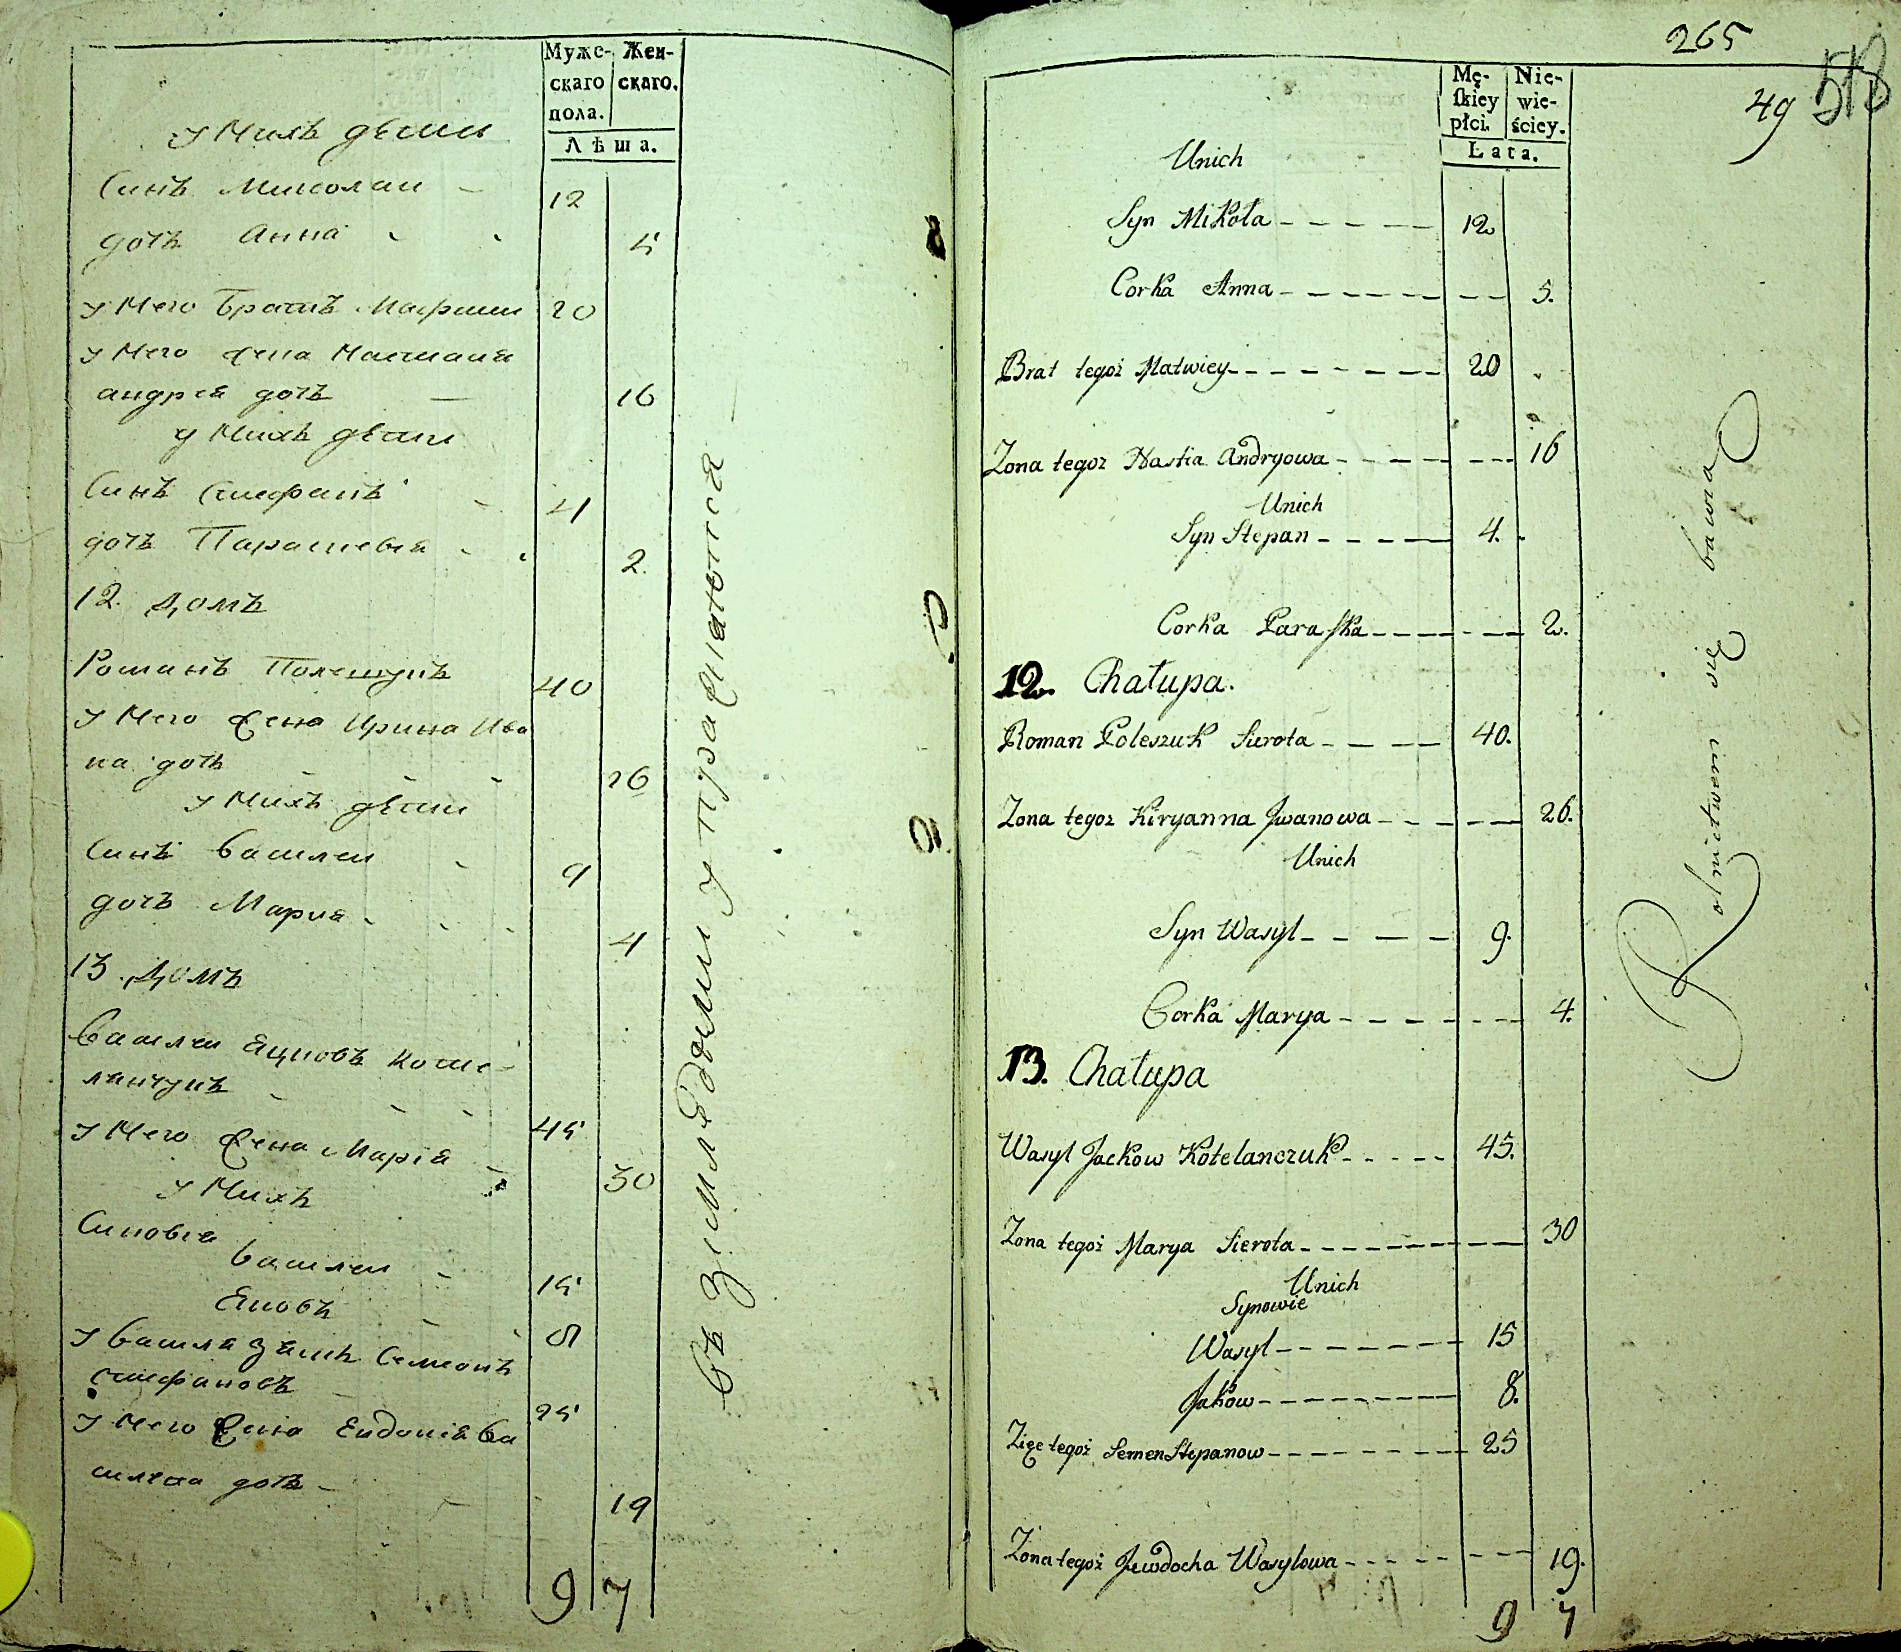 Муже-
скаго
пола.
Жен-
скаго.
Лѣта.
у нихъ дети
Синъ Миколаи 12
дочъ Анна 5
у него братъ Матфии 20
у него жена Настасия
андрея дочъ 16
у нихъ дети
Синъ Стефанъ 4
дочъ Парасковия 2.
12. Домъ
Романъ Полешукъ 40
у него жена Ирина Ива
на дочъ 26
у нихъ дети
Синъ Василеи 9
дочъ Мария 4
13. Домъ
Василеи Яцковъ Коте-
ланчукъ 45
у него жена Мария 30
у нихъ
Синовья
Василеи 15
Яковъ 8
у Василя зять Семионъ
Стефановъ 25
у него жена Евдокия Ва
силева дочъ 19
9 7
въ земледелии упражнаются
265
49
518
Mę-
skiey
płci.
Nie-
wie-
ściey.
Lata.
Unich
Syn Mikoła 12
Corka Anna 5.
Brat tegoż Matwiey 20
Zona tegoz Nastia Andryowa 16
Unich
Syn Stepan 4.
Corka Paraska 2.
12. Chałupa.
Roman Poleszuk Sierota 40.
Zona tegoz Kiryanna Jwanowa 26.
Unich
Syn Wasyl 9.
Corka Marya 4.
13. Chałupa
Wasyl Jackow Kotelanczuk 45.
Zona tegoż Marya Sierota 30
Unich
Synowie
Wasyl 15
Jakow 8.
Zięc tegoż Semen Stepanow 25
Zona tegoż Jewdocha Wasylowa 19.
9 7
Rolnictwem się bawią